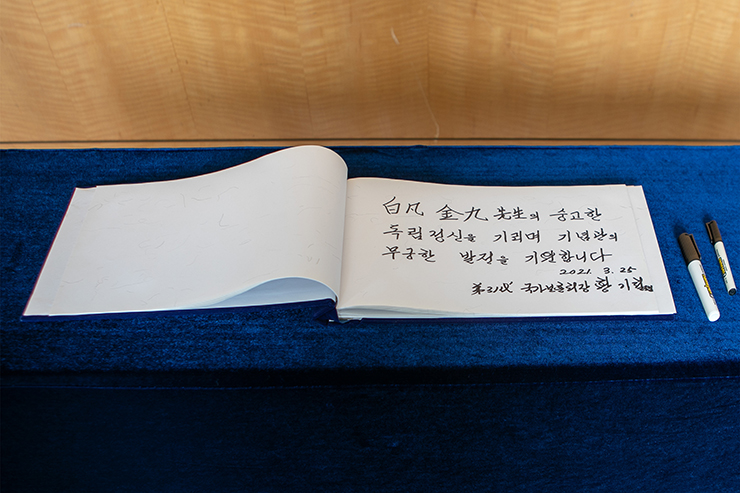 白凡 金九 先生의 숭고한
독립정신을 기리며 기념관의
무궁한 발전을 기원합니다
2021. 3. 25
第31代 국가보훈처장 황 기철